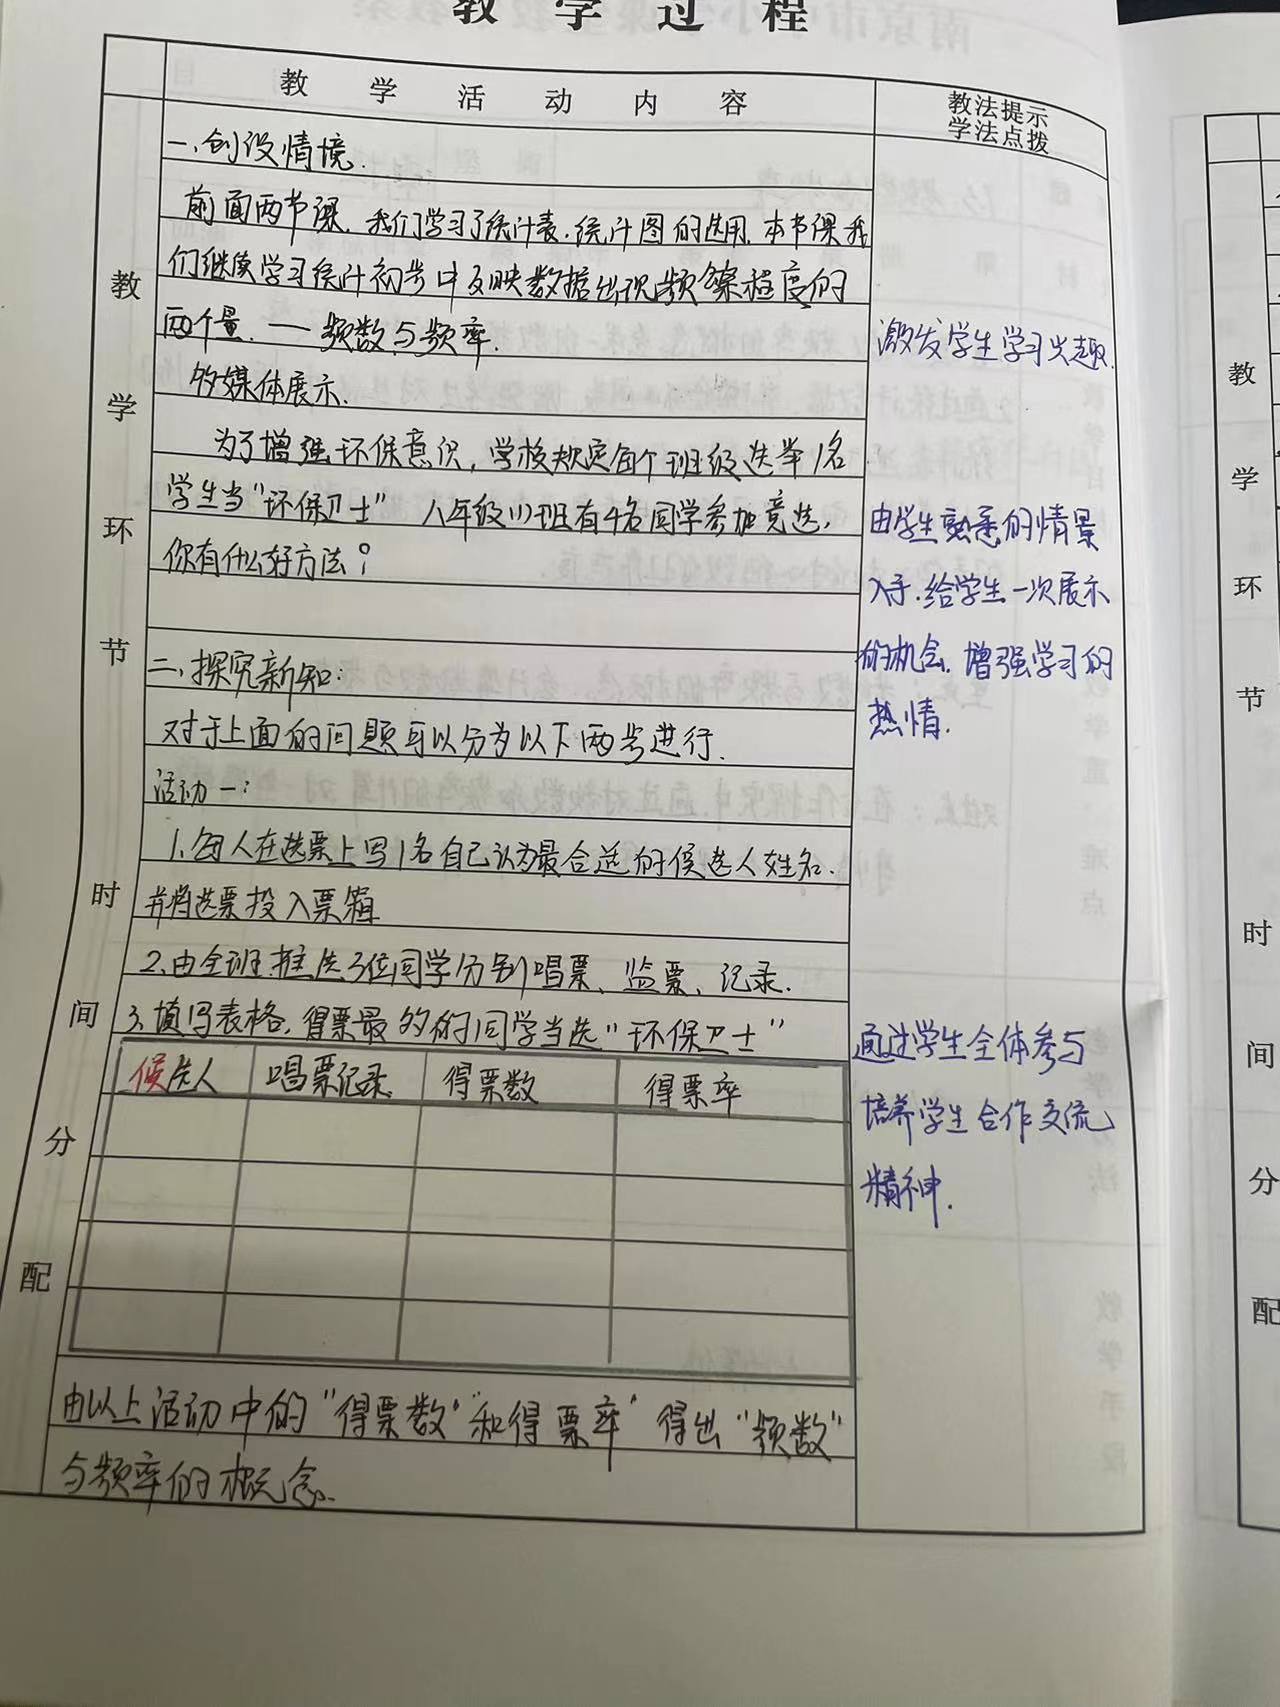 教学过程
教学活动内容
教法提示
学法点拨
教学环节时间分配
一、创设情境.
前面两节课,我们学习了统计表、统计图的选用,本节课我
们继续学习统计初步中反映数据出现频繁程度的
两个量.——频数与频率.
多媒体展示.
为了增强环保意识,学校规定每个班级选举1名
学生当"环保卫士"八年级(1)班有4名同学参加竞选,
你有什么好方法?
二、探究新知:
对于上面的问题可以分为以下两步进行.
活动一:
1.每人在选票上写1名自己认为最合适的候选人姓名.
并将选票投入票箱
2.由全班推选3位同学分别唱票、监票、记录.
3.填写表格,得票最多的同学当选"环保卫士"
候选人 唱票记录 得票数 得票率
由以上活动中的"得票数"和得票率"得出"频数"
与频率的概念.
激发学生学习兴趣.
由学生熟悉的情景
入手.给学生一次展示
的机会.增强学习的
热情.
通过学生全体参与
培养学生合作交流
精神.
教学环节时间分配